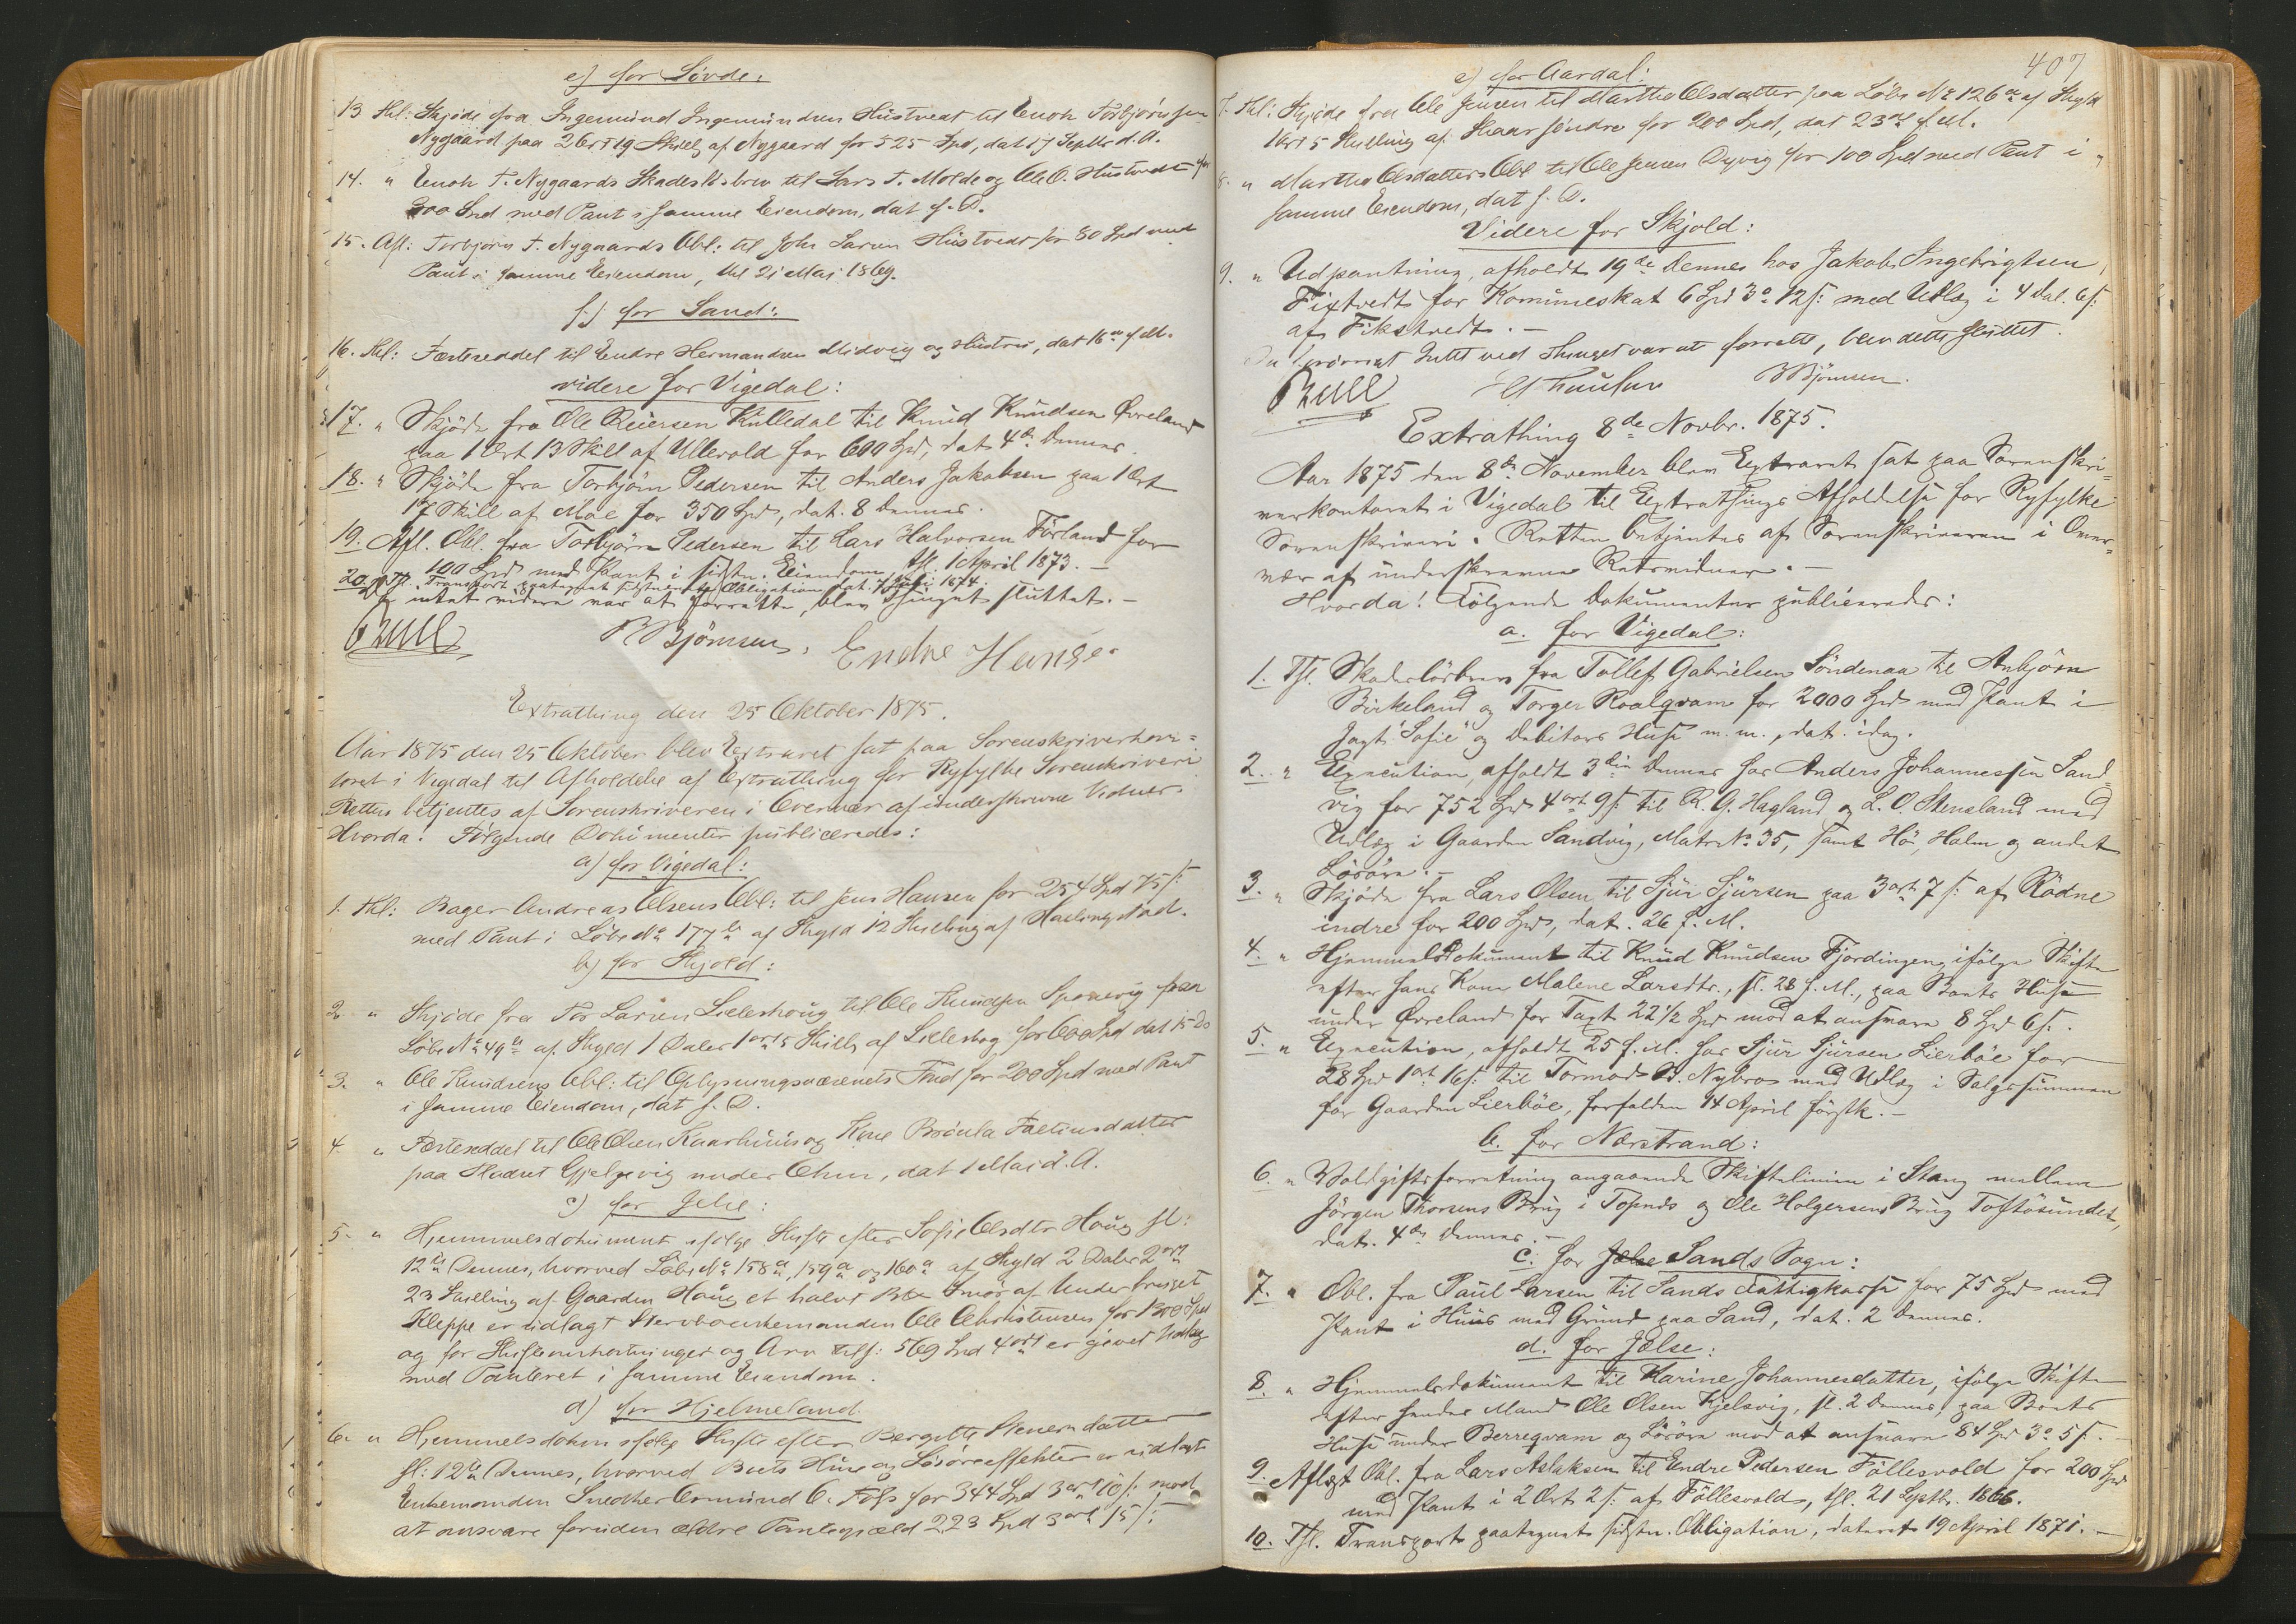 e) for Søvde:
13 Thl: Skjøde fra Ingemund Ingemundsen Hustvedt til Enok Torbjørnsen
Nygaard paa 2 Ort 19 Skill af Nygaard for 525 Spd, dat 17 Septbr d. A.
14. " Enok T. Nygaards Skadesløsbrev til Lars T. Molde og Ole O. Hustvedt for
300 Spd med Pant i samme Eiendom, dat s. D.
15. Afl: Torbjørn T. Nygaards Obl: til John Larsen Hustvedt for 80 Spd med
Pant i samme Eiendom, thl 21 Mai 1869.
f.) for Sand:
16. Thl: Fæsteseddel til Endre Hermandsen Midvig og Hustru, dat 16de f. M.
videre for Vigedal:
17. " Skjöde fra Ole Reiersen Kulledal til Knud Knudsen Øvreland
paa 1 Ort 13 Skill af Ullevold for 600 Spd, dat. 4de Dennes.
18. " Skjöde fra Torbjörn Pedersen til Anders Jakobsen paa 1 Ort
17 Skill af Moe for 350 Spd, dat. 8 Dennes.
19. Afl. Obl. fra Torbjörn Pedersen til Lars Halvorsen Förland for
100 Spd med Pant i sidstn. Eiendom, thl. 1 April 1873. -
20. Thl. Transport paategnet sidstnævnte Obligation, dat. 7 Juli 1874.
Da intet videre var at forrette, blev Thinget sluttet. -
Bull BBjörnsen, Endre Hauge.
Extrathing den 25 Oktober 1875.
Aar 1875 den 25 Oktober blev Extraret sat paa Sorenskriverkon=
toret i Vigedal til Afholdelse af Extrathing for Ryfylke Sorenskriveri
Retten betjentes af Sorenskriveren i Overvær af underskrevne Vidner.
Hvorda: Følgende Dokumenter publiceredes:
a) for Vigedal:
1. Thl: Bager Andreas Olsens Obl: til Jens Hansen for 254 Spd 75 s:
med Pant i Løbe No 177 b af Skyld 12 Skilling af Haelingstad.
b) for Skjold:
2. " Skjøde fra Tor Larsen Lieleshoug til Ole Knudsen Sponevig paa
Løbe No 49 b af Skyld 1 Daler 1 ort 5 Skill af Lilleshog for 600 Spd dat 15 Ds
3. " Ole Knudsens Obl: til Oplysningsvæsenets Fond for 200 Spd med Pant
i samme Eiendom, dat s. D.
4. " Fæsteseddel til Ole Olsen Knarhuus og Kone Brönla Faltinsdatter
paa Pladset Gjelgevig under Ohm, dat 1 Mai d. A.
c) for Jelse:
5. " Hjemmelsdokument ifølge Skifte efter Sofie Olsdtr Houg sl:
12te Dennes, hvorved Løbe No 158 a, 159 a og 160 a af Skyld 2 Daler 2 ort
23 Skilling af Gaarden Houg et halvt Bpd Smør af Underbruget
Kleppe er udlagt Stervboenkemanden Ole Christensen for 1300 Spd
og for Skifteomkostninger og Arv tils: 569 Spd 4 ort er gjevet Udlæg
med Panteret i samme Eiendom.
d) for Hjelmeland.
6. " Hjemmelsdokum ifølge Skifte efter Bergitte Stenersdatter
sl: 12te Dennes, hvorved Boets Huse og Løsøreeffekter er udlagt
Enkemanden Snedker Osmund O. Fofs for 344 Spd 3 ort 10 s: mod
at ansvare foruden ældre Pantegjæld 223 Spd 3 ort 15 s:
407
e) for Aardal:
7. Thl: Skjøde fra Ole Jensen til Martha Olsdatter paa Løbe No 126 a af Skyld
1 Ort 5 Skilling af Skaar søndre for 200 Spd, dat 23de f. M.
8. " Martha Olsdatters Obl til Ole Jensen Dyvig for 100 Spd med Pant i
samme Eiendom, dat s. D.
Videre for Skjold:
9. " Udpantning, afholdt 19de Dennes hos Jakob Ingebrigtsen
Fixtvedt for Kommuneskat 6 Spd 3 o 12 s: med Udlæg i 4 Dal. 6 s:
af Fikstvedt. -
Da iøvrigt Intet ved Thinget var at forrette, blev dette sluttet.
Bull BBjörnsen.
Extrathing 8de Novbr. 1875.
Aar 1875 den 8de November blev Extraret sat paa Sorenskri-
verkontoret i Vigedal til Extrathings Afholdelse for Ryfylke
Sorenskriveri. Retten betjentes af Sorenskriveren i Over-
vær af underskrevne Retsvidner. -
Hvorda! Fölgende Dokumenter publiceredes:
a. for Vigedal:
1. Thl. Skadeslösbrev fra Tollef Gabrielsen Söndenaa til Anbjörn
Birkeland og Torger Roalqvam for 2000 Spd med Pant i
Jagt "Sofie" og Debitors Huse m. m., dat. idag.
2. " Execution, afholdt 3die Dennes hos Anders Johannessen Sand-
vig for 752 Spd 4 ort 9 s: til R. G. Hagland og L. O. Stensland med
Udlæg i Gaarden Sandvig, Matr No 35, samt Hö, Halm og andet
Lösöre. -
3. " Skjöde fra Lars Olsen til Sjur Sjursen paa 3 ort 7 s: af Rödne
indre for 200 Spd, dat. 26 f. M.
4. " Hjemmelsdokument til Knud Knudsen Fjordingen, ifölge Skifte
efter hans Kone Malene Larsdtr., sl. 28 f. M., paa Boets Huse
under Øvreland for Taxt 22 1/2 Spd mod at ansvare 8 Spd 6 s:.
5. " Execution, afholdt 25 f. M. hos Sjur Sjursen Lierböe for
28 Spd 1 ort 16 s: til Tormod B. Nybro med Udlæg i Salgssummen
for Gaarden Lierböe, forfalden 14 April förstk. -
b. for Nærstrand:
6. " Voldgiftsforretning angaaende Skiftelinien i Stang mellem
Jörgen Thorsens Brug i Topnes og Ole Holgersens Brug Toftösundet,
dat. 4de Dennes. -
c. for Jelse Sands Sogn:
7. " Obl. fra Paul Larsen til Sands Fattigkasse for 75 Spd med
Pant i Huus med Grund paa Sand, dat. 2 Dennes.
d. for Jælse:
8. " Hjemmelsdokument til Karine Johannesdatter, ifölge Skifte
efter hendes Mand Ole Olsen Kjelsvig, sl. 2 Dennes, paa Boets
Huse under Berreqvam og Lösöre mod at ansvare 84 Spd 3 o 5 s:.
9. Aflæst Obl. fra Lars Aslaksen til Endre Pedersen Föllesvold for 200 Spd
med Pant i 2 Ort 2 s: af Föllesvold, thl. 21 Septbr. 1866.
10. Thl. Transport paategnet sidstn. Obligation, dateret 19 April 1871. -